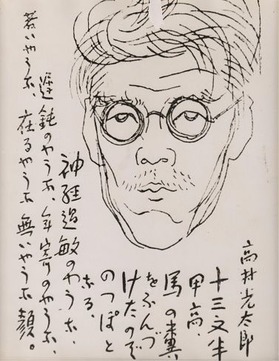 高村光太郎
十三文半
甲高
馬の糞
をふんづ
けたので
のつぽと
なる、
神経過敏のやうな、
遅鈍のやうな、年寄のやうな、
若いやうな、在るやうな無いやうな顔。